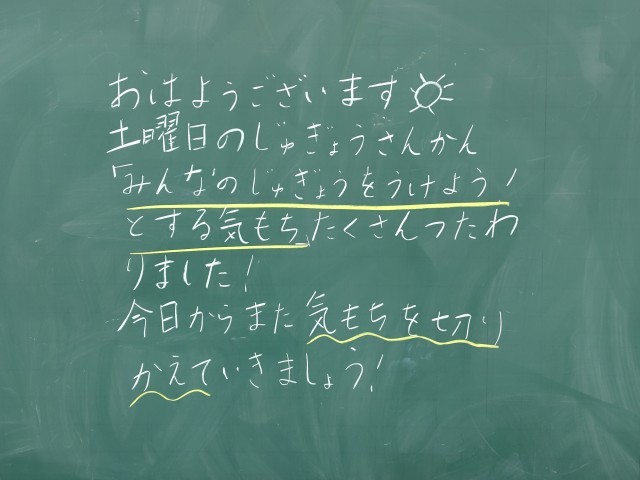 おはようございます
土曜日のじゅぎょうさんかん
「みんなのじゅぎょうをうけよう!
とする気もち」たくさんつたわ
りました!
今日からまた気もちを切り
かえていきましょう!